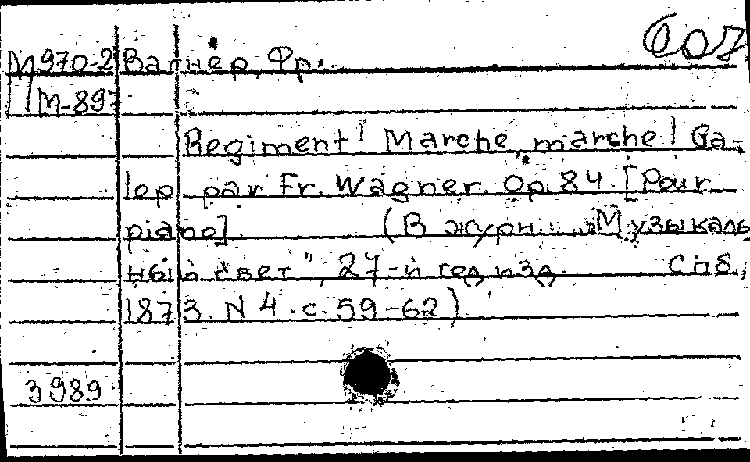 607
М970-2 Вагнер, Фр.
М-897
Regiment! Marche, marche! Ga-
lop par Fr. Wagner. Op. 84. [Pour
piano] (В журн. „Музыкаль
ный свет", 27-й год изд. Спб.,
1873. N 4. с. 59-62)
3989